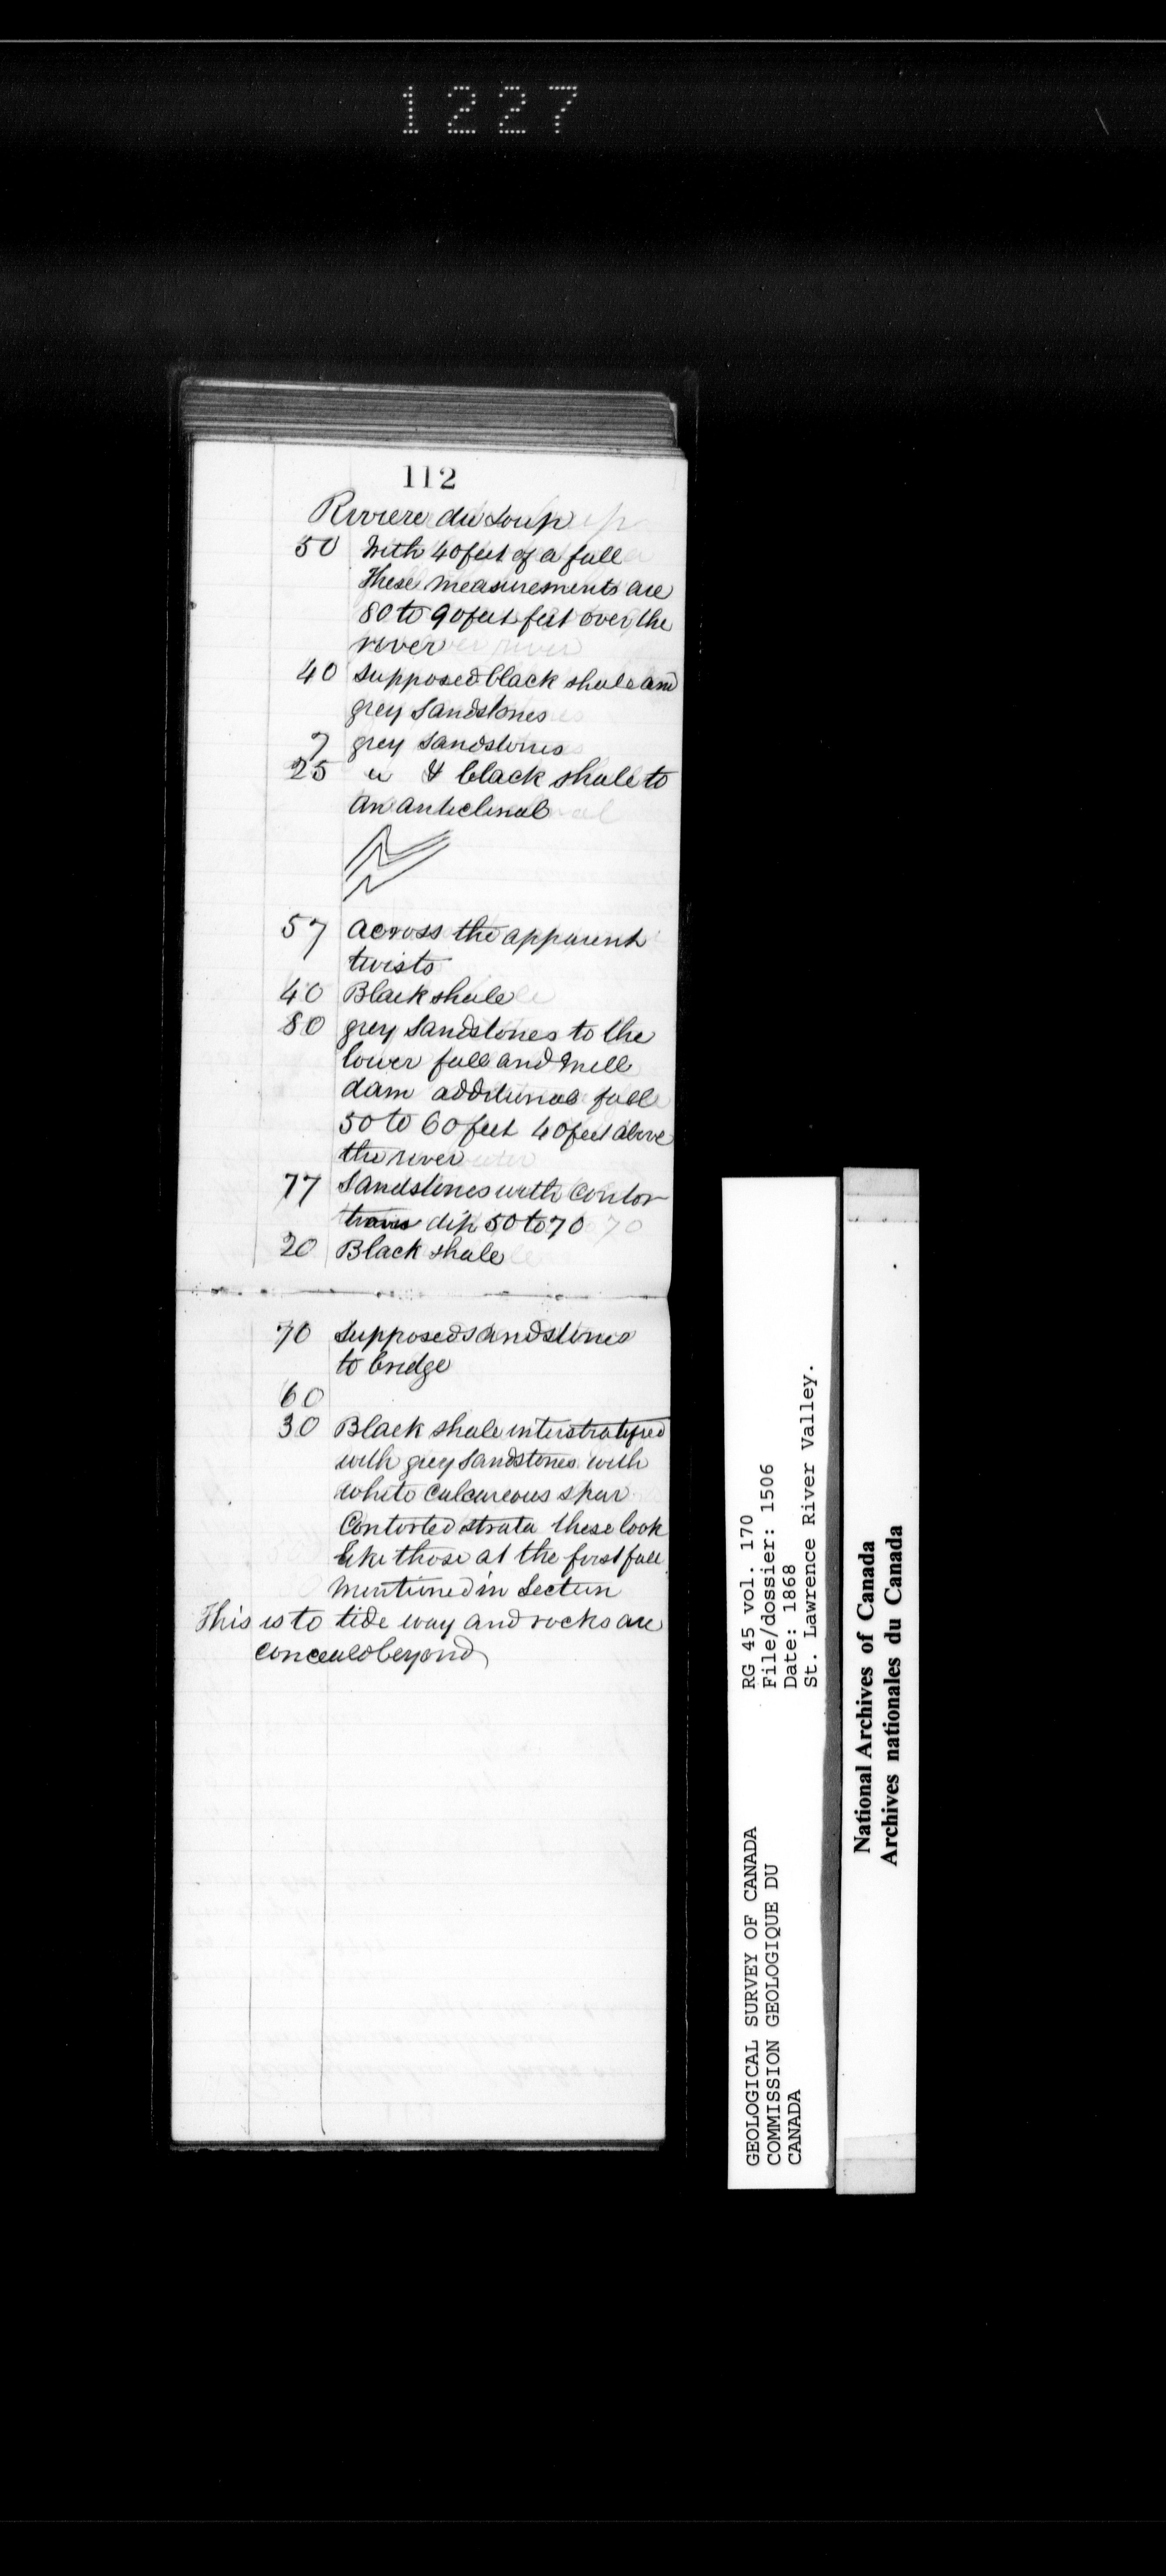 1227
112
Riviere du Loup
50 With 40 feet of a fall
These measurements are
80 to 90 feet feet over the
river
40 Supposed black shale and
grey Sandstones
7 grey Sandstones
25 " & black shale to
an anticlinal
57 across the apparent
twists
40 Black shale
80 grey Sandstones to the
lower fall and Mill
dam additional fall
50 to 60 feet 40 feet above
the river
77 Sandstones with Contor
tions dip 50 to 70
20 Black shale
70 Supposed sandstones
to bridge
60
30 Black shale interstratified
with grey Sandstones with
white Calcareous spar
Contorted strata these look
like those at the first fall
Mentioned in Section
This is to tide way and rocks are
conceald beyond
GEOLOGICAL SURVEY OF CANADA
COMMISSION GEOLOGIQUE DU
CANADA
RG 45 vol. 170
File/dossier: 1506
Date: 1868
St. Lawrence River Valley.
National Archives of Canada
Archives nationales du Canada